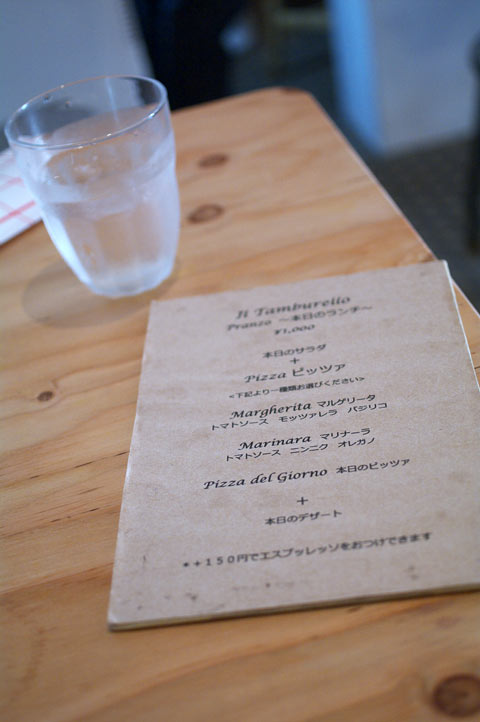 Il Tamburello
Pranzo ～本日のランチ～
¥1,000
本日のサラダ
+
Pizza ピッツァ
<下記より一種類お選びください>
Margherita マルゲリータ
トマトソース モッツァレラ バジリコ
Marinara マリナーラ
トマトソース ニンニク オレガノ
Pizza del Giorno 本日のピッツァ
+
本日のデザート
*+150円でエスプッレッソをおつけできます